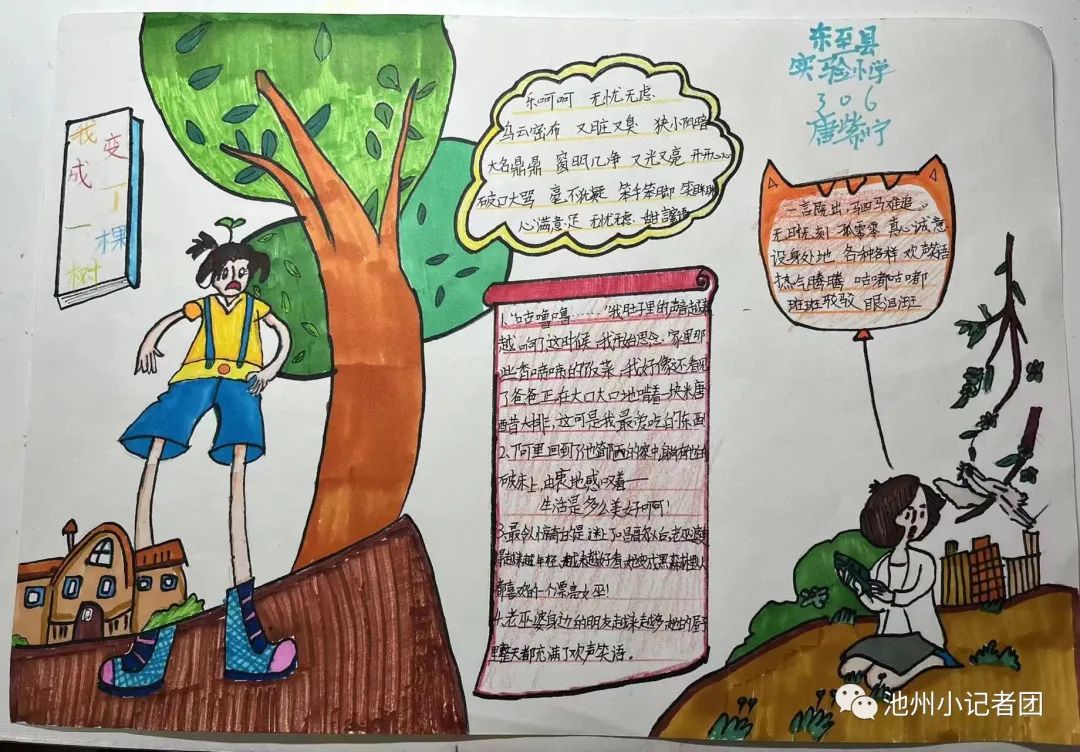 我变
成了
一棵
树
东至县
实验小学
306
唐紫宁
乐呵呵 无忧无虑
乌云密布 又脏又臭 狭小阴暗
大名鼎鼎 窗明几净 又光又亮 开开心心
破口大骂 毫不犹疑 笨手笨脚
心满意足 无忧无虑 甜言蜜语
一言既出，驷马难追。
无时无刻 孤零零 真心诚意
设身处地 各种各样 欢声笑语
热气腾腾 咕嘟咕嘟
斑斑驳驳 眼泪汪汪
1、“咕噜噜……”我肚子里的声音越来
越响了这时候，我开始思念家里那
些香喷喷的饭菜，我好像还看见
了爸爸正在大口大口地啃着一块米唐
醋大排，这可是我最爱吃的东西
2、阿里回到了他
破床上，由衷地感叹着——
生活是多么美好啊！
3、最令人惊奇的是
越来越年轻、越来越好看，她变成黑森林里人
喜欢的一个漂亮女巫！
4、老巫婆身边的朋友越来越多，她的屋子
里整天都充满了欢声笑语。
池州小记者团